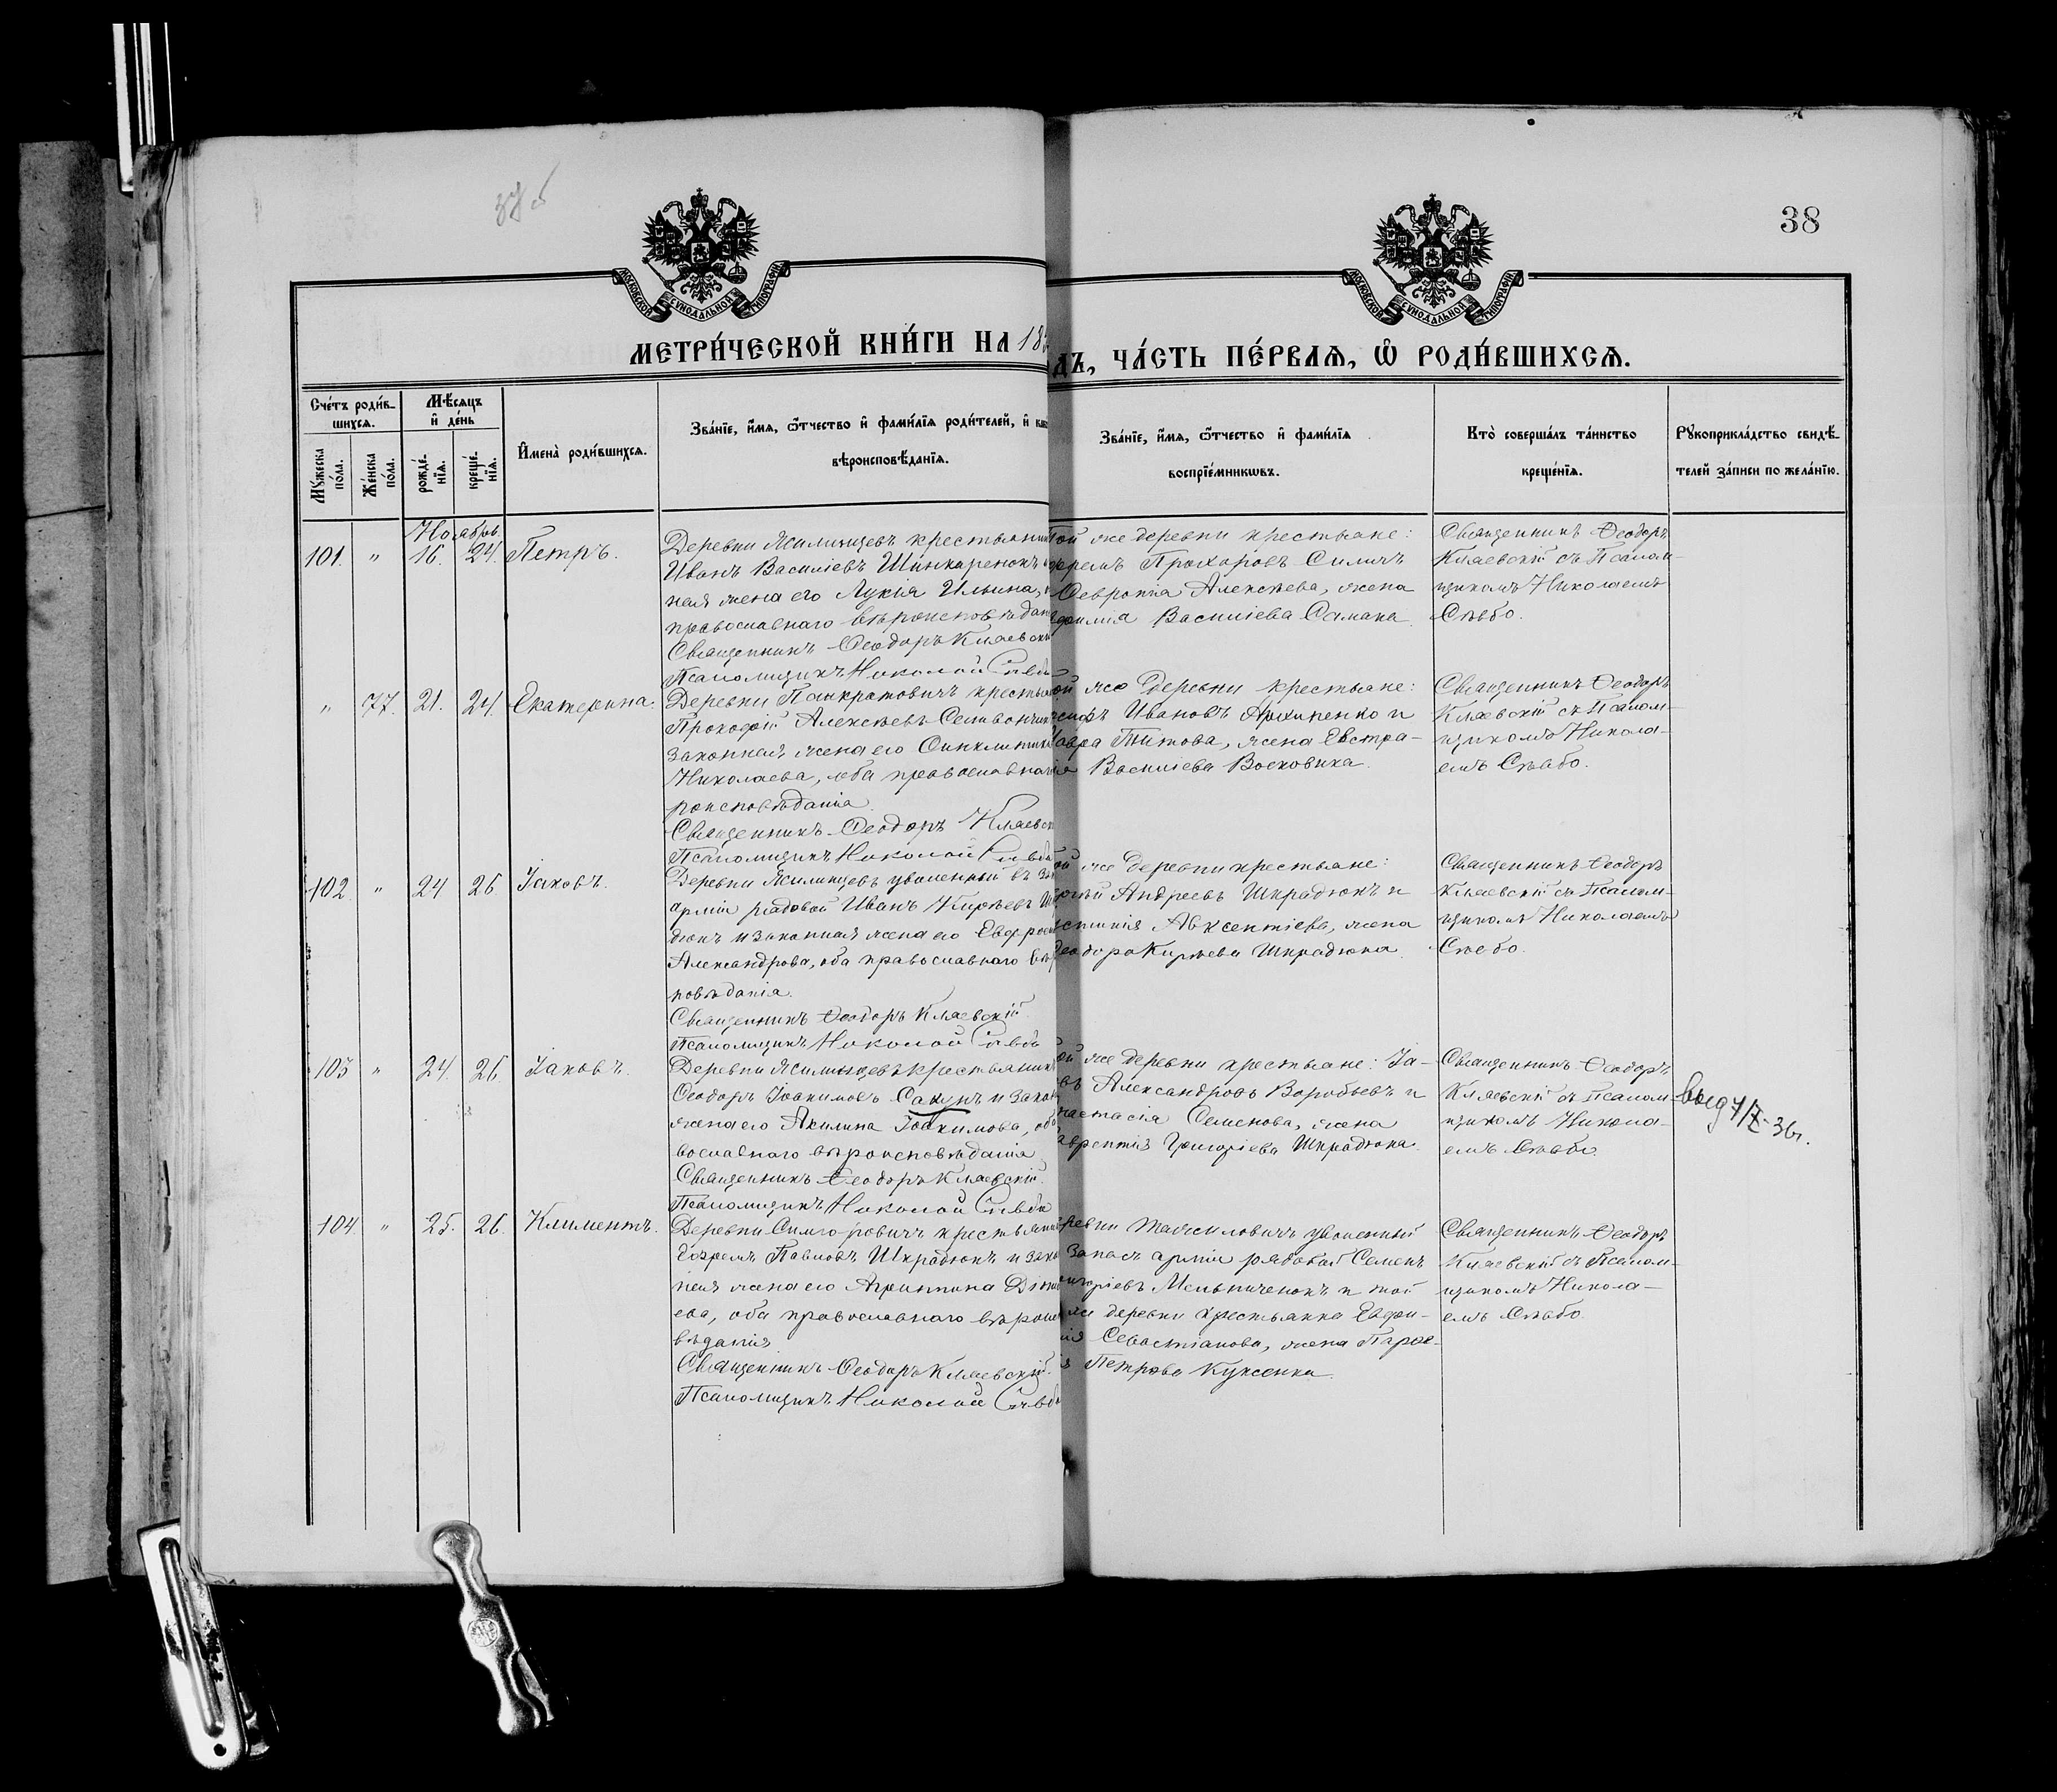 38
МОСКОВСКОЙ СѴНОДАЛЬНОЙ ТИПОГРАФІИ
МОСКОВСКОЙ СѴНОДАЛЬНОЙ ТИПОГРАФІИ
МЕТРИ́ЧЕСКОЙ КНИ́ГИ НА 18
ДЪ, ЧА́СТЬ ПЕ́РВАѦ, Ѿ РОДИ́ВШИХСѦ.
Сче́тъ роди́в-
шихсѧ.
Мꙋ́жеска по́ла.
Же́нска по́ла.
Мѣ́сяцъ
и҆ де́нь
рожде́-
нїѧ.
креще́-
нїѧ.
И҆мена̀ роди́вшихсѧ.
Зва́нїе, и҆́мѧ, ѻ҆́тчество и҆ фами́лїѧ роди́телей, и҆
вѣроисповѣ́данїѧ.
Зва́нїе, и҆́мѧ, ѻ҆́тчество и҆ фами́лїѧ
воспрїе́мникѡвъ.
Кто̀ соверша́лъ та́инство
креще́нїѧ.
Рꙋкоприкла́дство свидѣ́-
телей за́писи по жела́нїю.
Ноябрь
101. " 16. 24. Петръ.
Деревни Жилинцевъ крестьянин
Иванъ Василіевъ Шинкаренокъ
ная жена его Лукія Ильина,
православнаго вѣроисповѣдан
Священникъ Ѳеодоръ Кляевскі
Псаломщикъ Николай Сѣвбо
той же деревни крестьяне:
фремъ Прохоровъ Симачъ
Февронія Алексѣева, жена
Василіева Самака.
Священникъ Ѳеодоръ
Кляевскій съ Псалом-
щикомъ Николаемъ
Сѣвбо.
" 77. 21. 24. Екатерина.
Деревни Панкратовичъ крестья
Прокофій Алексѣевъ
законная жена его Синклитик
Николаева, оба православнаг
роисповѣданія.
Священникъ Ѳеодоръ Кляевск
Псаломщикъ Николай Сѣвбо
ой же деревни крестьяне:
сифъ Ивановъ Архипенко и
Титова, жена Евстра-
Василіева Восковика.
Священникъ Ѳеодоръ
Кляевскій съ Псалом-
щикомъ Никола-
емъ Сѣвбо.
102. " 24 26 Іаковъ.
Деревни Жилинцевъ уволенный въ зап
арміи рядовой Иванъ Кирѣевъ Шк
дюкъ и законная жена его Евфрос
Александрова, оба православнаго вѣр
повѣданія.
Священникъ Ѳеодоръ Кляевскій.
Псаломщикъ Николай Сѣвбо
ой же деревни крестьяне:
Андреевъ Шкрадюкъ и
Авксентіева, жена
Ѳеодора Кирѣева Шкрадюка.
Священникъ Ѳеодоръ
Кляевскій съ Псалом-
щикомъ Николаемъ
Сѣвбо.
103 " 24. 26. Іаковъ.
Деревни Жилинцевъ крестьянинъ
Ѳеодоръ Іоакимовъ Сакунъ и закон
жена его Акилина Іоакимова, оба
вославнаго вѣроисповѣданія.
Священникъ Ѳеодоръ Кляевскій.
Псаломщикъ Николай Сѣвбо
ой же деревни крестьяне: Іа-
въ Александровъ Воробьевъ и
настасія Семенова, жена
аврентія Григоріева Шкрадюка.
Священникъ Ѳеодоръ
Кляевскій съ Псалом-
щикомъ Никола-
емъ Сѣвбо.
104. " 25. 26. Климентъ.
Деревни крестьянин
Ефремъ Павловъ Шкрадюкъ и зако
ная жена его Агрипина Дими
ева, оба православнаго вѣроис
вѣданія
Священникъ Ѳеодоръ Кляевскій.
Псаломщикъ Николай Сѣвбо
ревни уволенный
запасъ арміи рядовой Семенъ
игоріевъ Мельниченокъ и той
же деревни крестьянка Евдок-
ія Севастіанова, жена
Петрова Куксенка.
Священникъ Ѳеодоръ
Кляевскій съ Псалом-
щикомъ Никола-
емъ Сѣвбо.